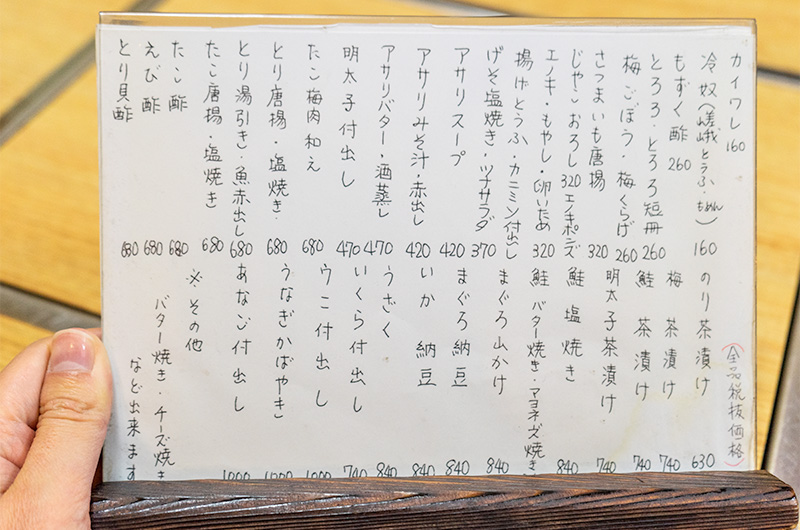 カイワレ 160
冷奴(嵯峨とうふ・もめん) 160
もずく酢 260
とろろ・とろろ短冊 260
梅ごぼう・梅くらげ 260
さつまいも唐揚 320
じゃこおろし 320 エノキポン酢
エノキ・もやし・卵いため 320
揚げとうふ・カニミソ付出し
げそ塩焼き・ツナサラダ 370
アサリスープ 420
アサリみそ汁・赤出し 420
アサリバター・酒蒸し 470
明太子付出し 470
たこ梅肉和え 680
とり唐揚・塩焼き 680
とり湯引き・魚赤出し 680
たこ唐揚・塩焼き 680
たこ酢 680
えび酢 680
とり貝酢 680
(全品税抜価格)
のり茶漬け 630
梅茶漬け 740
鮭茶漬け 740
明太子茶漬け 740
鮭塩焼き 840
鮭バター焼き・マヨネーズ焼き
まぐろ山かけ 840
まぐろ納豆 840
いか納豆 840
うざく 840
いくら付出し 740
ウニ付出し 1000
うなぎかばやき 1000
あなご付出し 1000
※その他
バター焼き・チーズ焼き
など出来ます